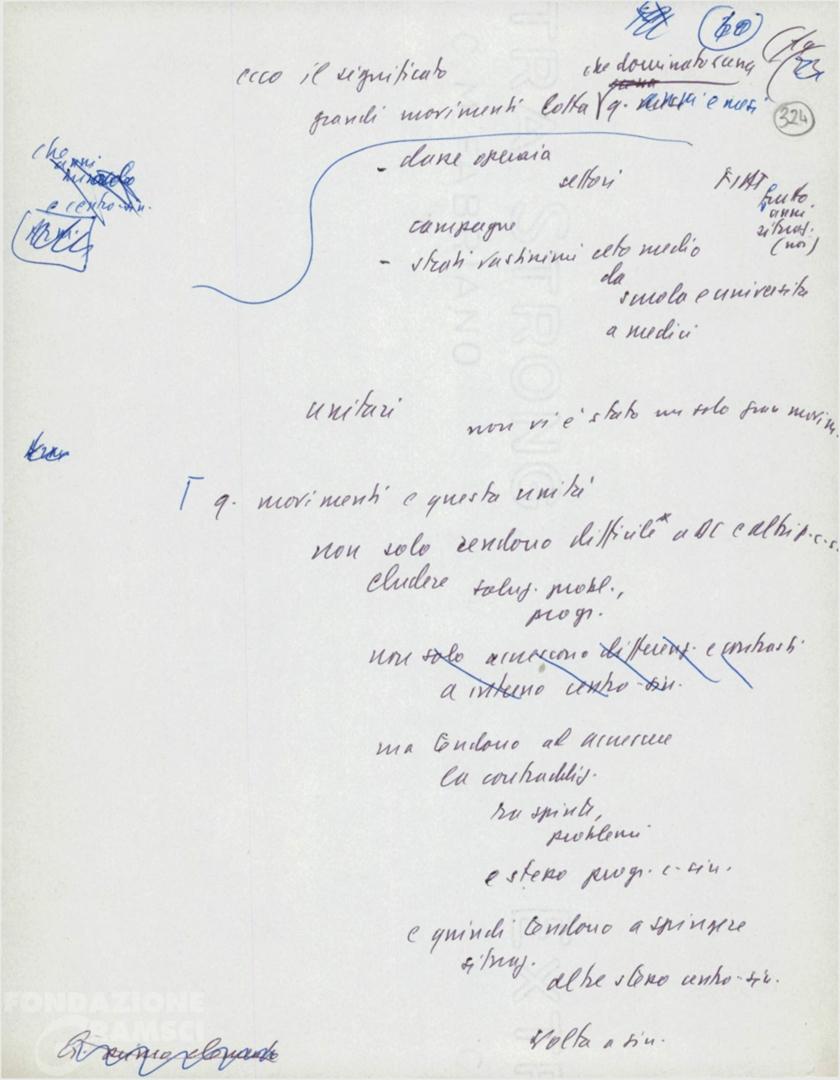 60
324
ecco il significato
che dominato scena
grandi movimenti lotta q. e mesi
- classe operaia
settori
FIAT
frutto
anni
situaz.
(noi)
che
anni
e centro-sin.
campagne
- strati vastissimi ceto medio
da
scuola e università
a medici
unitari
non vi è stato un solo gran movim.
q. movimenti e questa unità
non solo rendono difficile a DC e altri p. c-s.
eludere soluz. probl.,
progr.
non solo accrescono differenz. e contrasti
a interno centro-sin.
ma tendono ad accrescere
la contraddiz.
tra spinte,
problemi
e stesso progr. c-sin.
e quindi tendono a spingere
situaz.
oltre stesso centro-sin.
Svolta a sin.
FONDAZIONE
GRAMSCI